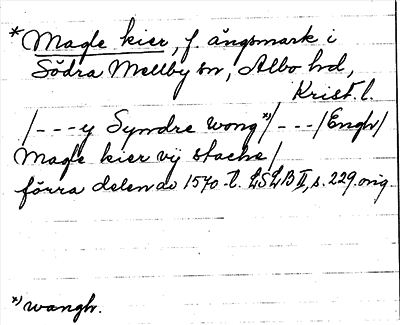 * Magle kier, f. ångsmark i
Södra Mellby sn, Albo hd,
Krist. l.
/---y Syndre wong *)/---/Engh/
Magle kier vij stache/
förra delen av 1570-t. LSLB II, s. 229. orig.
*) wangh.